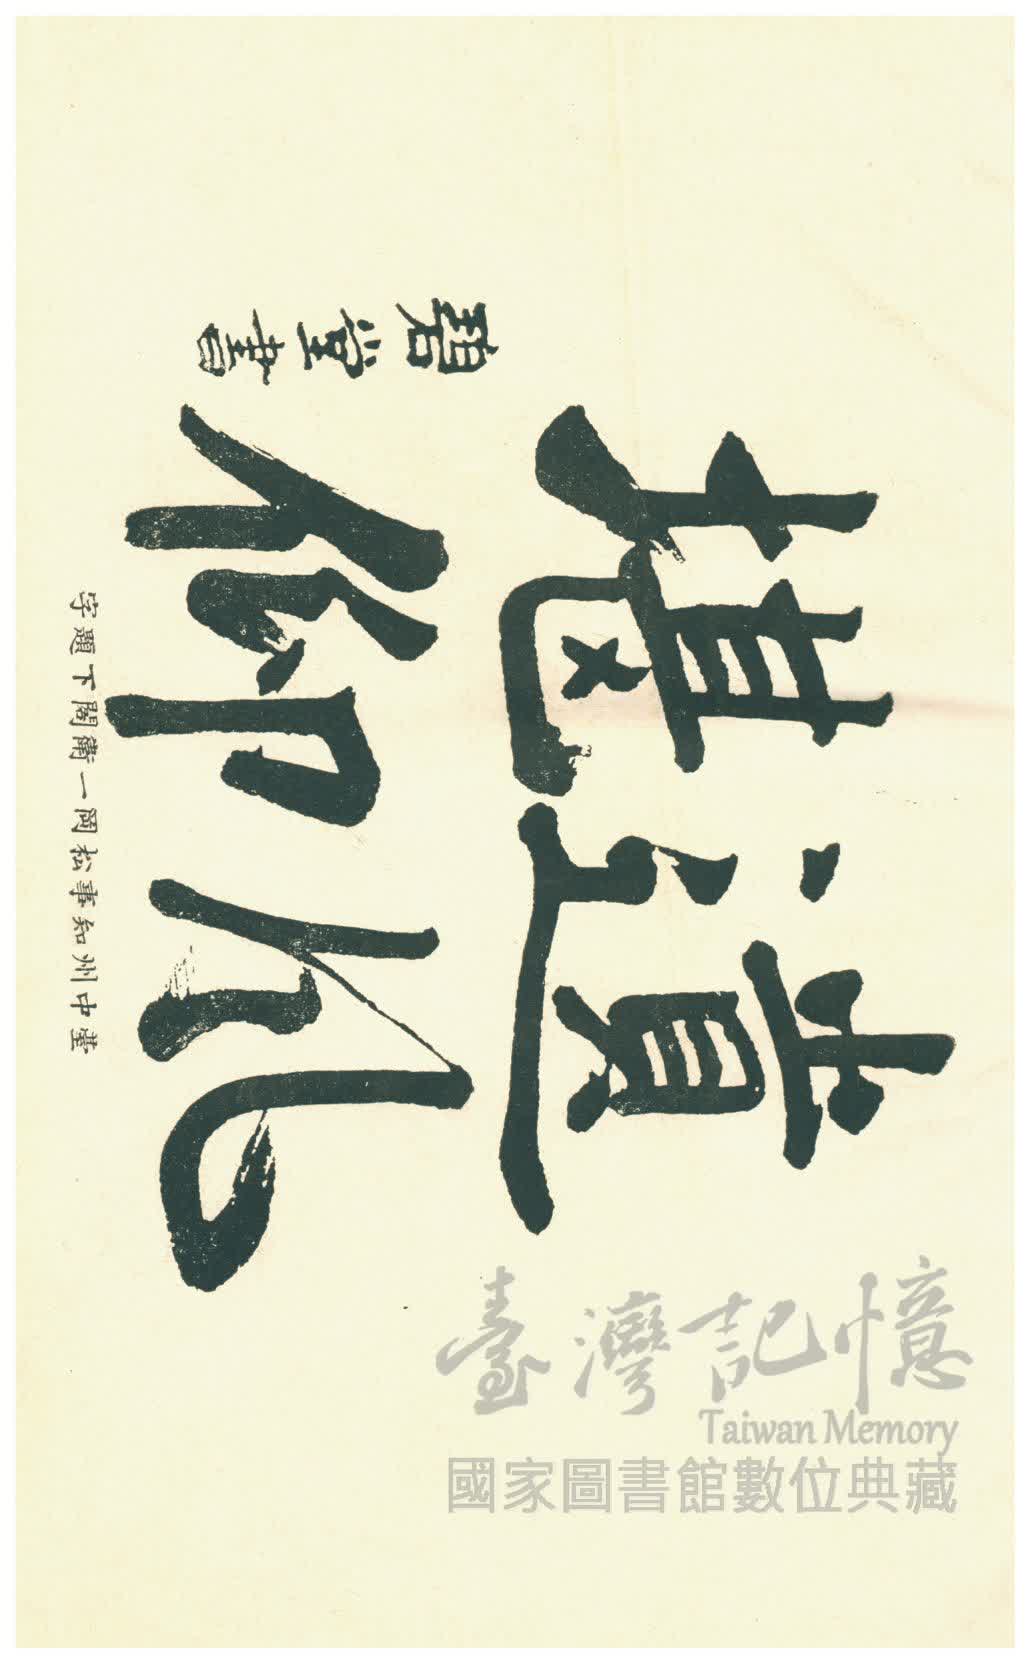 遺風
堪仰
碧堂書
臺中州知事松岡一衛閣下題字
臺灣記憶
Taiwan Memory
國家圖書館數位典藏